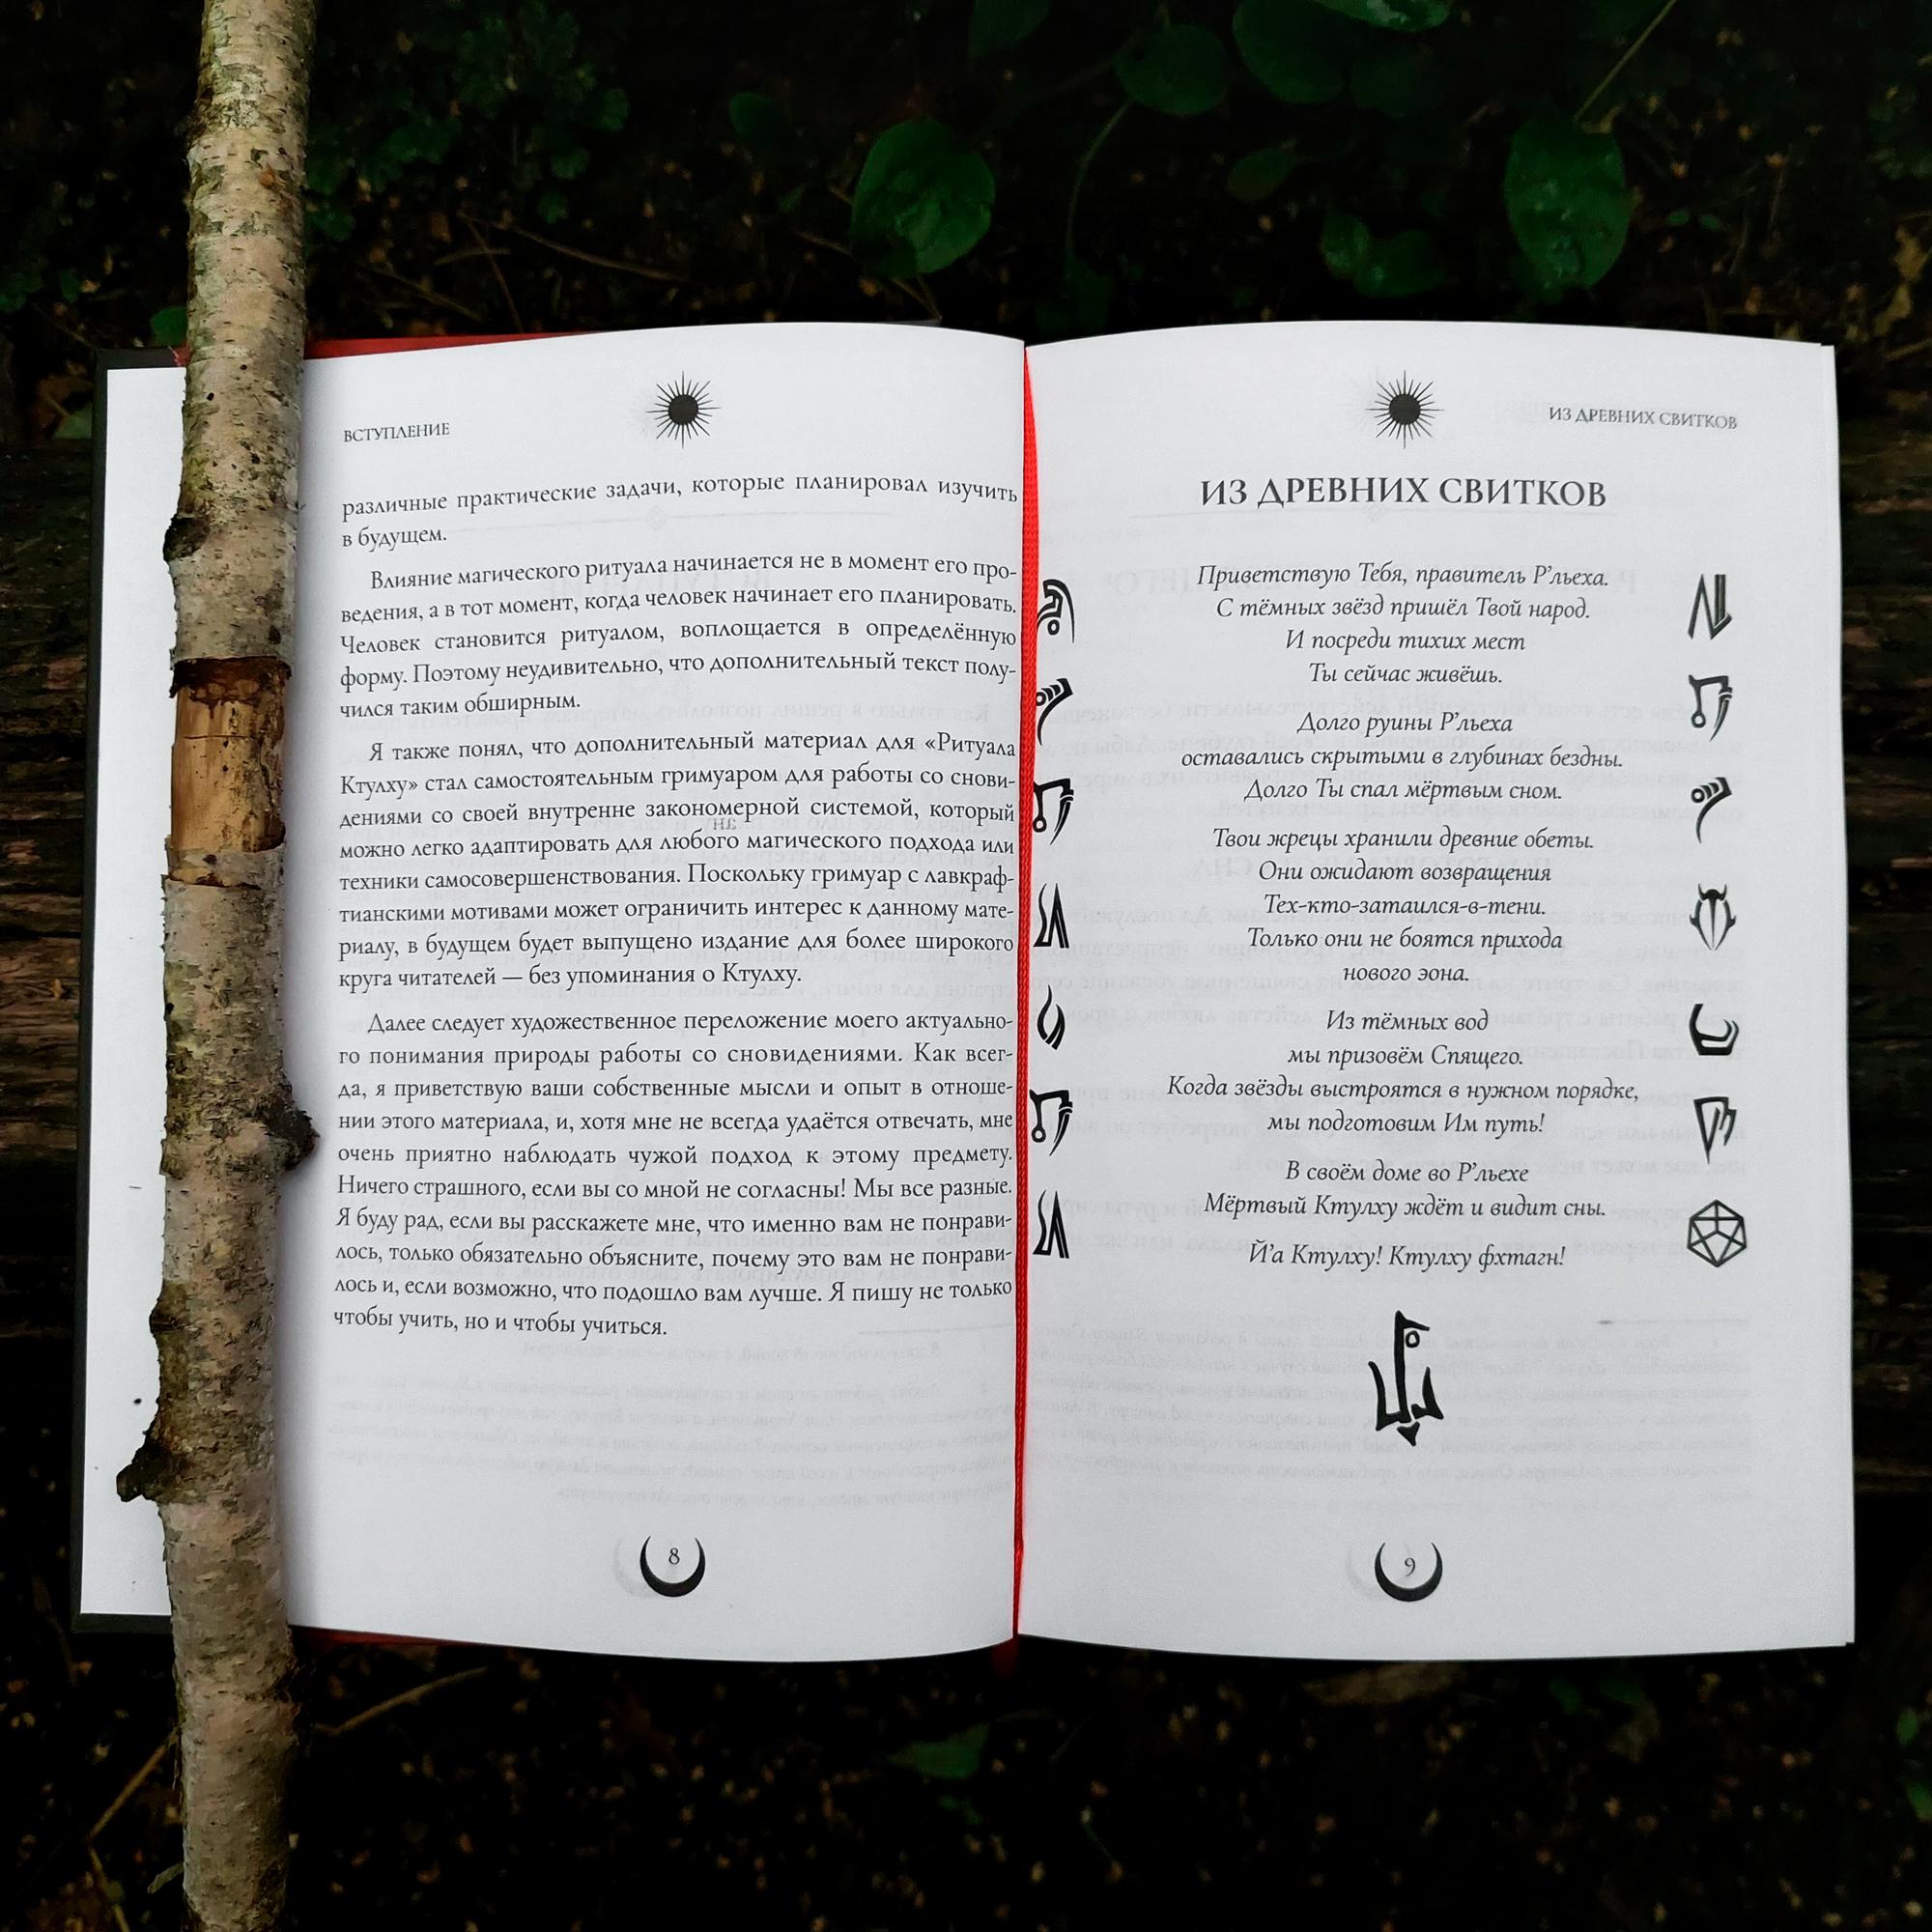 ВСТУПЛЕНИЕ
различные практические задачи, которые планировал изучить
в будущем.
Влияние магического ритуала начинается не в момент его про-
ведения, а в тот момент, когда человек начинает его планировать.
Человек становится ритуалом, воплощается в определённую
форму. Поэтому неудивительно, что дополнительный текст полу-
чился таким обширным.
Я также понял, что дополнительный материал для «Ритуала
Ктулху» стал самостоятельным гримуаром для работы со снови-
дениями со своей внутренне закономерной системой, который
можно легко адаптировать для любого магического подхода или
техники самосовершенствования. Поскольку гримуар с лавкраф-
тианскими мотивами может ограничить интерес к данному мате-
риалу, в будущем будет выпущено издание для более широкого
круга читателей — без упоминания о Ктулху.
Далее следует художественное переложение моего актуально-
го понимания природы работы со сновидениями. Как всег-
да, я приветствую ваши собственные мысли и опыт в отноше-
нии этого материала, и, хотя мне не всегда удаётся отвечать, мне
очень приятно наблюдать чужой подход к этому предмету.
Ничего страшного, если вы со мной не согласны! Мы все разные.
Я буду рад, если вы расскажете мне, что именно вам не понрави-
лось, только обязательно объясните, почему это вам не понрави-
лось и, если возможно, что подошло вам лучше. Я пишу не только
чтобы учить, но и чтобы учиться.
8
ИЗ ДРЕВНИХ СВИТКОВ
ИЗ ДРЕВНИХ СВИТКОВ
Приветствую Тебя, правитель Р’льеха.
С тёмных звёзд пришёл Твой народ.
И посреди тихих мест
Ты сейчас живёшь.
Долго руины Р’льеха
оставались скрытыми в глубинах бездны.
Долго Ты спал мёртвым сном.
Твои жрецы хранили древние обеты.
Они ожидают возвращения
Тех-кто-затаился-в-тени.
Только они не боятся прихода
нового эона.
Из тёмных вод
мы призовём Спящего.
Когда звёзды выстроятся в нужном порядке,
мы подготовим Им путь!
В своём доме во Р’льехе
Мёртвый Ктулху ждёт и видит сны.
Й’а Ктулху! Ктулху фхтагн!
9